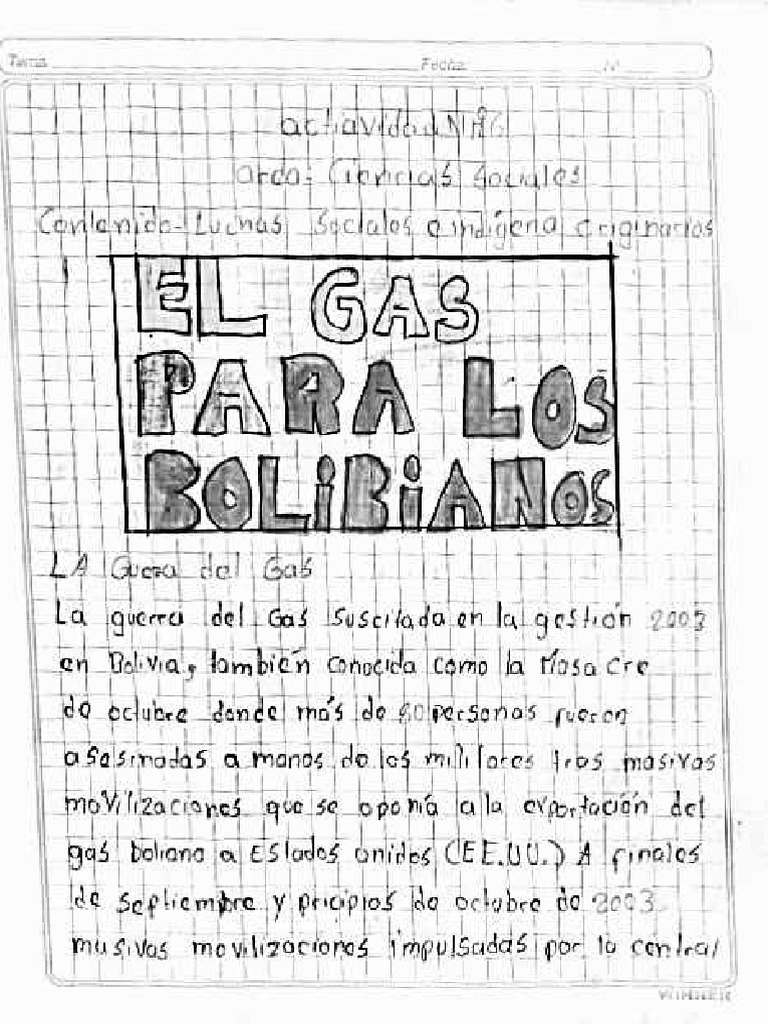 Tema Fecha: Nº
actiavidad Nº6
area: Ciencias Sociales
Contenido-Luchas Sociales e indígena originarios
EL GAS
PARA LOS
BOLiBiANOS
LA Guera del Gas
La guerra del Gas Suscitada en la gestión 2003
en Bolivia, también conocida como la Masacre
de octubre donde más de 80 personas fueron
asesinadas a manos de los militares tras masivas
moVilizaciones que se oponía a la exportación del
gas boliano a Estados unidos (EE.UU.) A finales
de septiembre y pricipios de octubre de 2003
masivas movilizaciones impulsadas por la central
WINNER